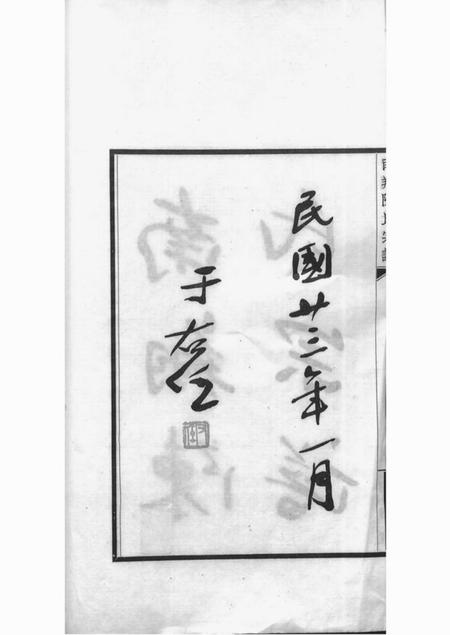 民國廿三年一月
于右任